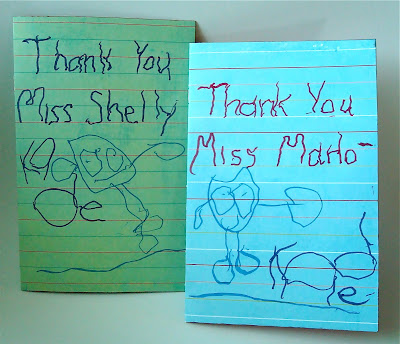 Thank You
Miss Shelly
Ka
de
Thank You
Miss Marlo-
Kade